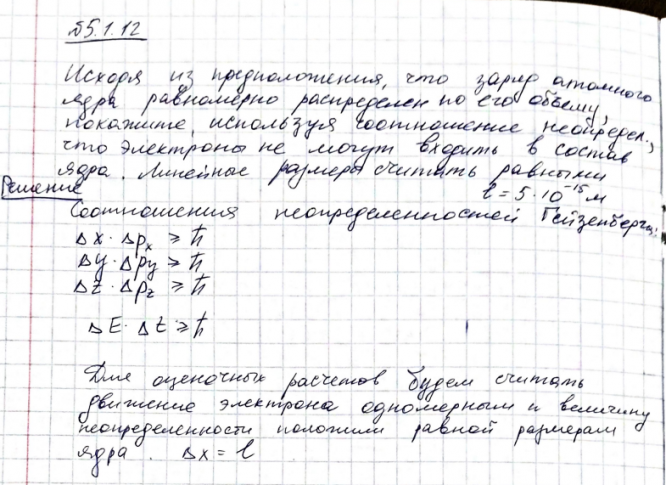 №5.1.12
Исходя из предположения, что заряд атомного
ядра равномерно распределен по его объему,
покажите, используя соотношение неопредел.,
что электроны не могут входить в состав
ядра. Линейные размеры считать равными
l = 5·10⁻¹⁵ м
Решение
Соотношения неопределенностей Гейзенберга:
Δx · Δpₓ ≥ ħ
Δy · Δpy ≥ ħ
Δz · Δpz ≥ ħ
ΔE · Δt ≥ ħ
Для оценочных расчетов будем считать
движение электрона одномерным и величину
неопределенности положим равной размерам
ядра. Δx = l